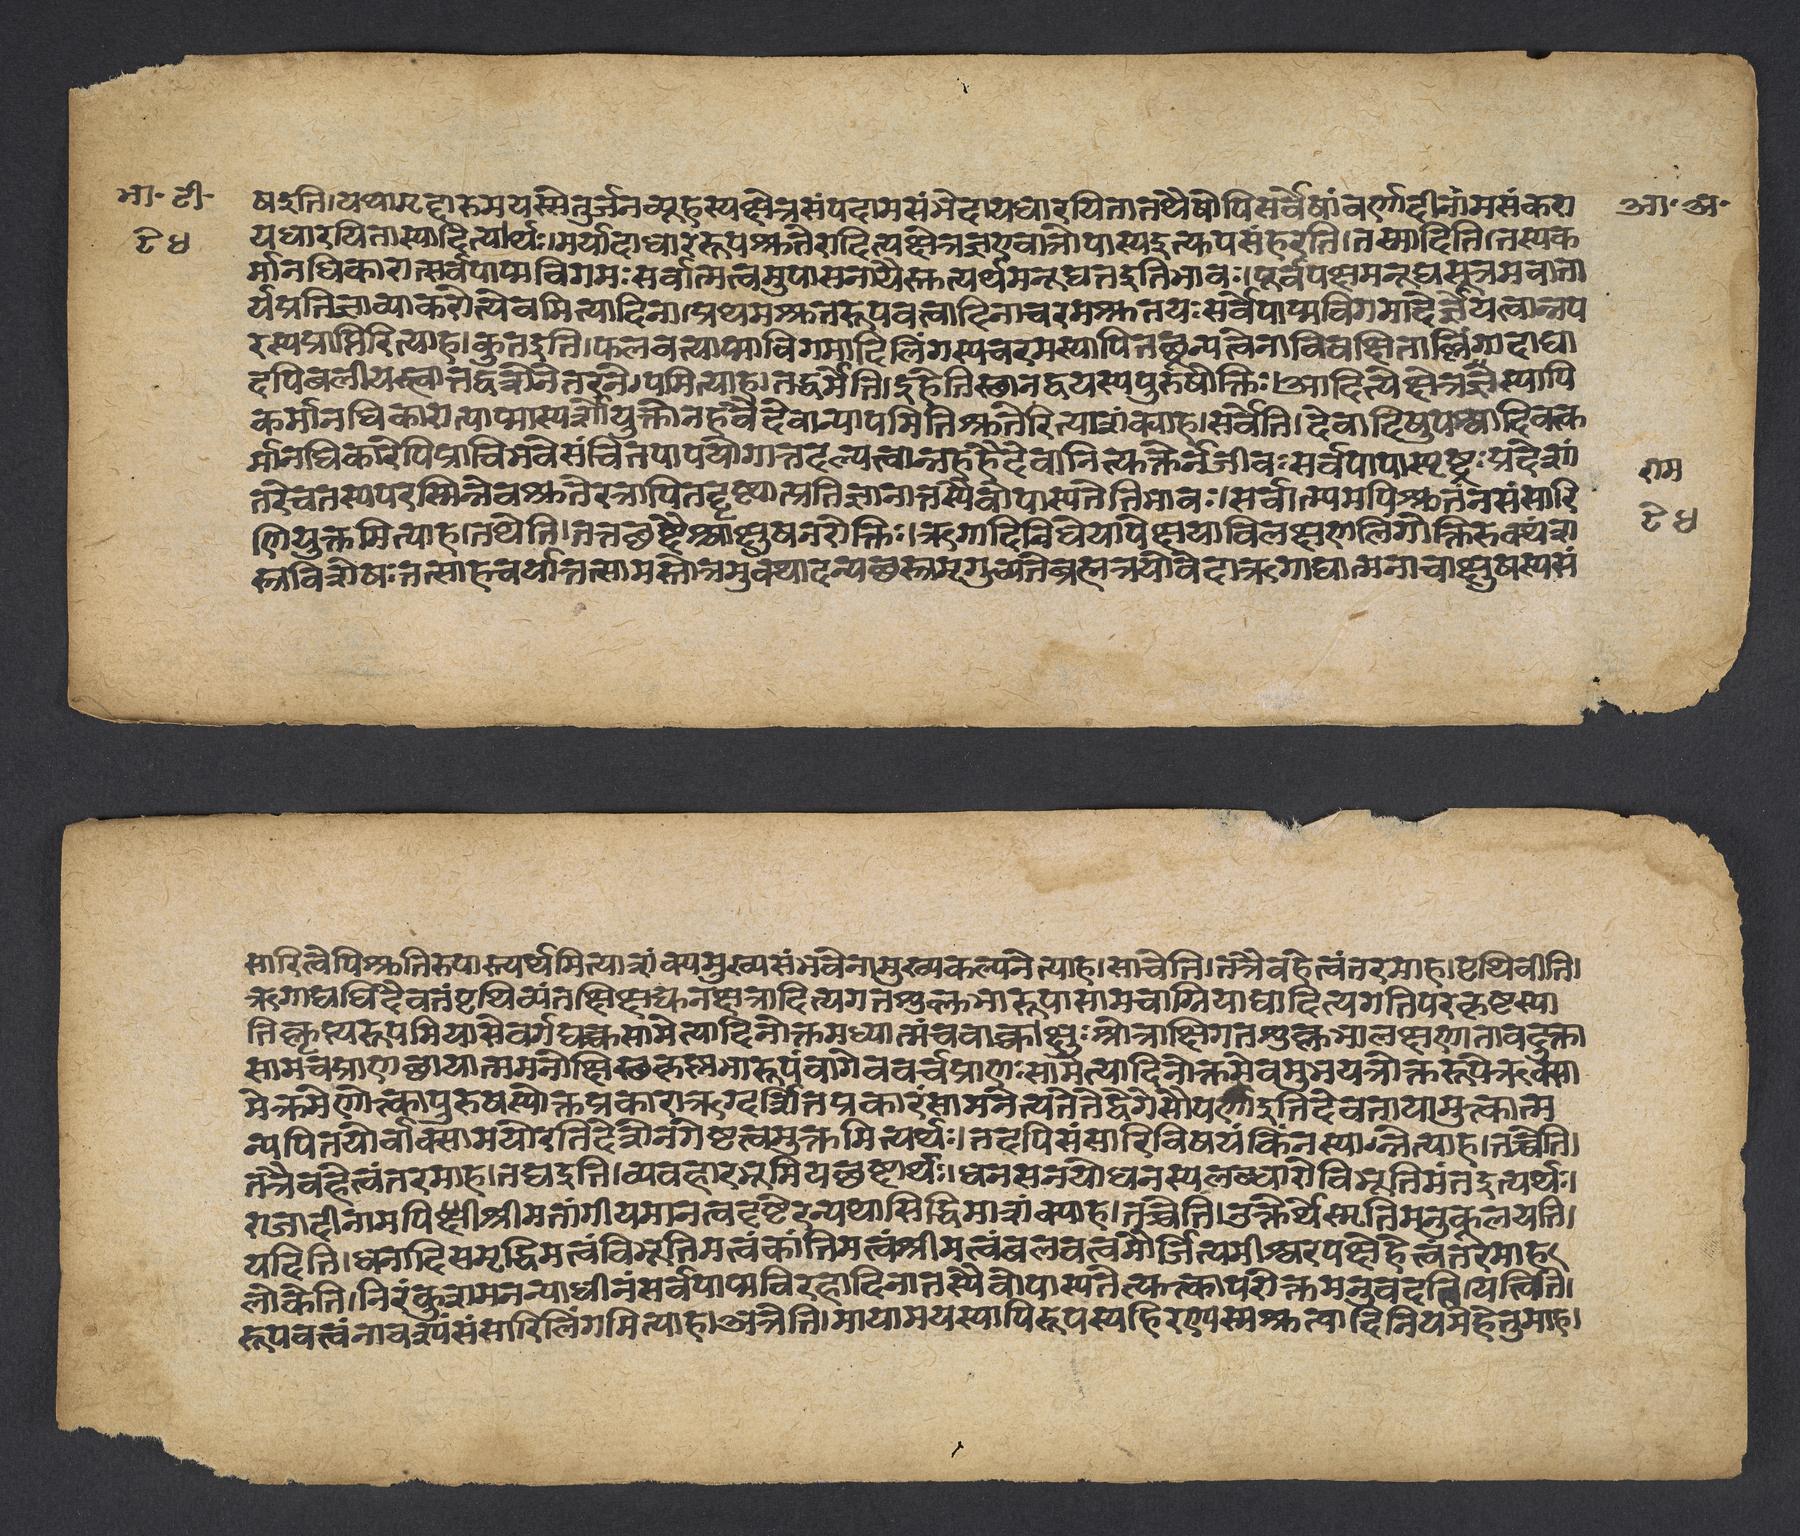 भा॰ टी॰
९४
आ॰ अ॰
राम
९४
षइति।यथामृद्दारुमयस्सेतुर्जनव्यूहस्यक्षेत्रसंपदामसंभेदायधारयितातथैषोपिसर्वेषांवर्णादीनामसंकरा
यधारयितास्यादित्यर्थः।मर्यादाधाररूपश्रुतेरादित्यक्षेत्रज्ञएवात्रोपास्यइत्युपसंहरति।तस्मादिति।तस्यक
र्मानधिकारात्सर्वपाप्मविगमःसर्वात्मत्वमुपासनायैस्तुत्यर्थमनूद्यतइतिभावः।पूर्वपक्षमनूद्यसूत्रमवाता
र्यप्रतिज्ञाव्याकरोत्येवमित्यादिना।प्रथमश्रुतरूपवत्वादिनाचरमश्रुतयःसर्वपाप्मविगमादेर्ज्ञेयत्वान्नप
रस्यप्राप्तिरित्याह।कुतइति।फलवत्पाप्माविगमादिलिंगस्यचरमस्यापितच्छून्यत्वेनाविवक्षिताल्लिंगादाद्या
दपिबलीयस्त्वात्तद्वशेनेतरन्नेयमित्याह।तद्धर्मेति।इहेतिस्थानद्वयस्थपुरुषोक्तिः।आदित्येक्षेत्रज्ञेस्यापि
कर्मानधिकारात्पाप्मास्पर्शोयुक्तोनहवैदेवान्पापमितिश्रुतेरित्याशंक्याह।सर्वेति।देवादिषुपाश्वादिवत्क
र्मानधिकारेपिप्राचिभवेसंचितपापयोगात्तदल्पत्वान्नहवैदेवानित्युक्तेर्नजीवःसर्वपापास्पृष्टःप्रदेशां
तरेचतस्यपरस्मिन्नेवश्रुतेरत्रापितद्दृष्ट्याप्रतिज्ञानात्तस्यैवोपास्यतेतिभावः।सर्वात्म्यमपिश्रुतंनसंसारि
णियुक्तमित्याह।तथेति।तत्तच्छब्दैश्चाक्षुषनरोक्तिः।ऋगादिविधेयापेक्षयाविलक्षणलिंगोक्तिरुक्थंश
स्त्रविशेषःतत्साहचर्यात्तत्सामस्तोत्रमुक्थादन्यच्छस्त्रमृगुच्यतेब्रह्मत्रयोवेदाऋगाद्यात्मनाचाक्षुषस्यसं
सारित्वेपिश्रुतिरुपास्त्यर्थमित्याशंक्यमुख्यसंभवेनामुख्यकल्पनेत्याह।साचेति।तत्रैवहेत्वंतरमाह।पृथिवीति।
ऋगाद्यधिदैवतंपृथिव्यंतरिक्षद्युनक्षत्रादित्यगतशुक्लभारूपासामचाग्निवाय्वादित्यगतिपरकृष्टस्या
तिकृष्णरूपमियमेवर्गग्निःसामेत्यादिनोक्तमध्यात्मंचवाक्चक्षुःश्रोत्राक्षिगतशुक्लभालक्षणातावदुक्ता
सामचप्राणछायात्ममनोक्षिस्थकृष्णभारूपंवागेवर्चप्राणःसामेत्यादिनोक्तमेवमुभयत्रोक्तरूपेऋक्सा
मेक्रमेणोत्कापुरुषस्योक्तप्रकाराऋग्दर्शितप्रकारंसामनेत्यतेतेद्वेगेसौपर्णाइतिदेवतायामुत्कात्म
न्यपितयोर्वाक्सामयोरतिदेशेनगेष्टत्वमुक्तमित्यर्थः।तदपिसंसारिविषयंकिंनस्यान्नेत्याह।तच्चेति।
तत्रैवहेत्वंतरमाह।तद्यइति।व्यवहारभूमियच्छब्दार्थः।धनसनयोधनस्यलब्धारोविभूतिमंतइत्यर्थः।
राजादीनामपिक्षीश्रीमतांगीयमानत्वदृष्टेरन्यथासिद्धिमाशंक्याह।तच्चेति।उक्तेर्थेस्मृतिमनुकूलयति।
यदिति।धनादिसमृद्धिमत्वंविभूतिमत्वंकांतिमत्वंश्रीमत्वंबलवत्वमौर्जित्यमीश्वरपक्षेहेत्वंतरमाह
लोकेति।निरंकुशमनन्याधीनंसर्वपाप्मविरहादिनातस्यैवोपास्यतेत्युत्कापरोक्तमनुवदति।यत्विति।
रूपवत्वंनावश्यंसंसारिलिंगमित्याह।अत्रेति।मायामयस्यापिरूपस्यहिरण्यस्मश्रुत्वादिनियमेहेतुमाह।